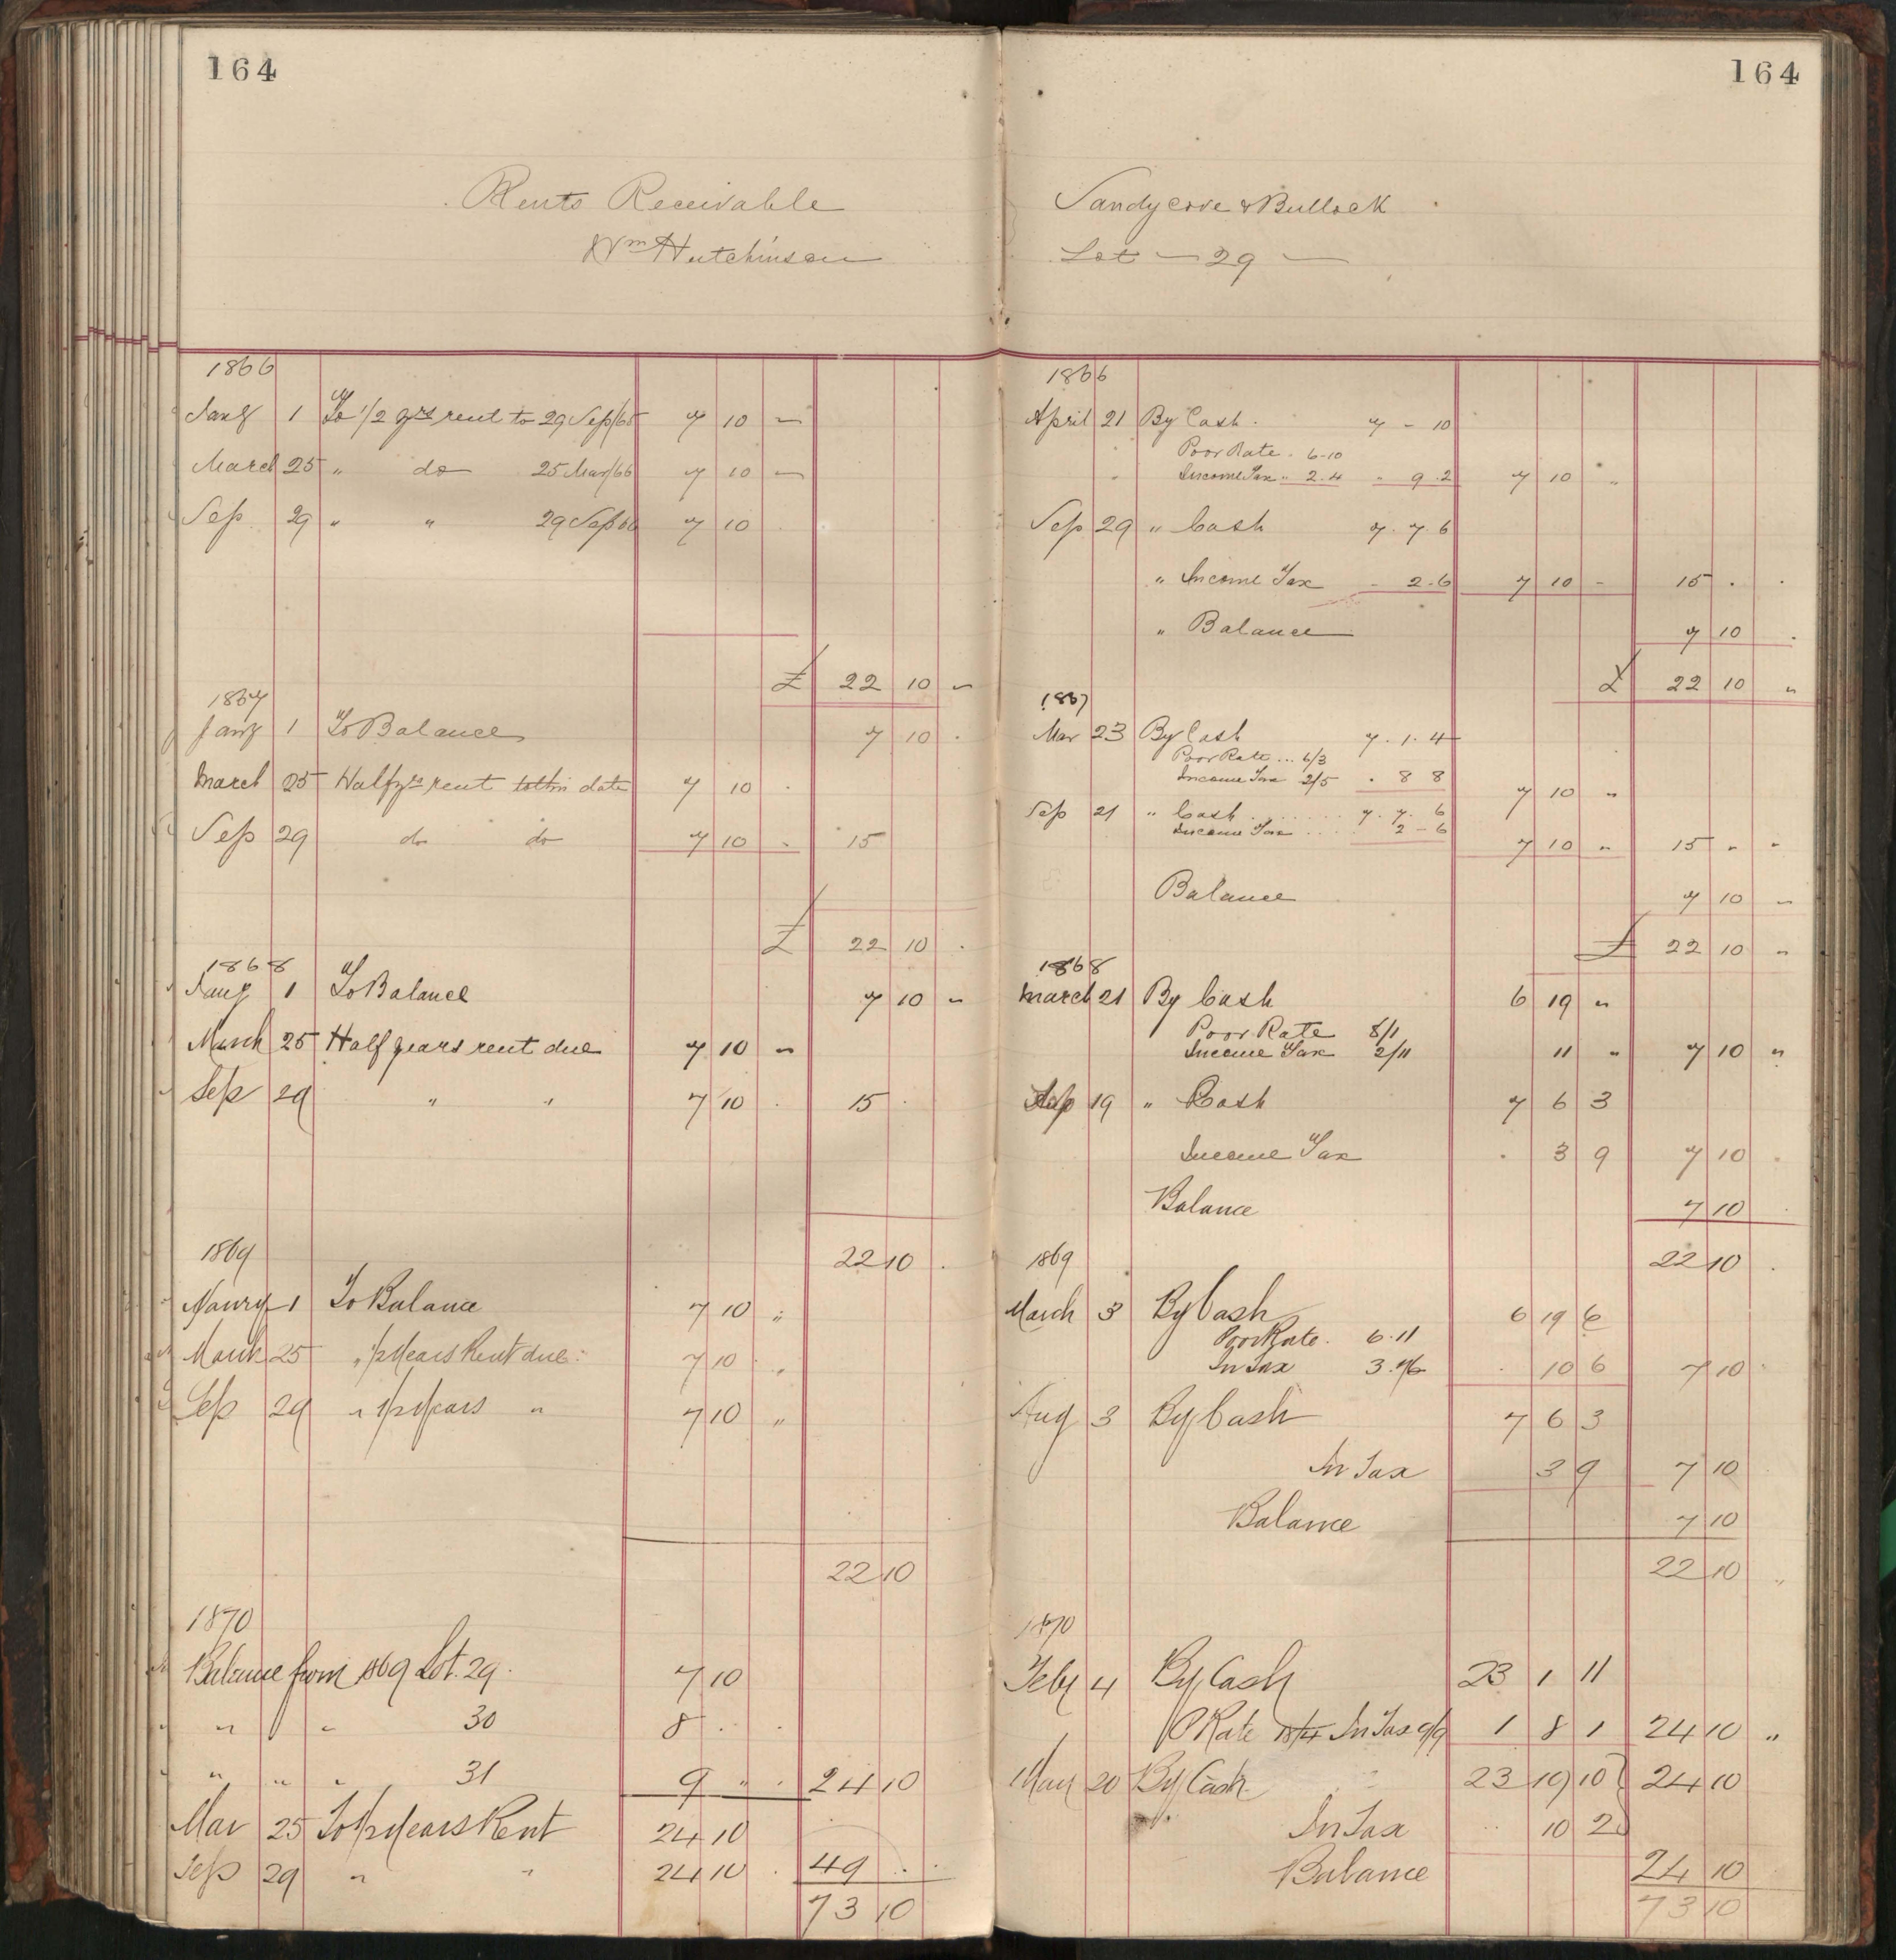 164
Rents Receivable
Wm Hutchinson
1866
Jany 1 To 1/2 yrs rent to 29 Sep/65 7 10 "
March 25 " do 25 Mar/66 7 10 "
Sep 29 " " 29 Sep 66 7 10
£ 22 10 "
1867
Jany 1 To Balance 7 10 .
March 25 Half yrs rent to this date 7 10 .
Sep 29 do do 7 10 . 15
£ 22 10 .
1868
Jany 1 To Balance 7 10 "
March 25 Half years rent due 7 10 "
Sep 29 " " 7 10 . 15 .
22 10 .
1869
Janry 1 To Balance 7 10 "
March 25 " 1/2 Years Rent due 7 10 "
Sep 29 " 1/2 Years " 7 10 "
22 10
1870
Balance from 1869 Lot. 29. 7 10
" " 30 8 . .
" " " 31 9 " . 24 10
Mar 25 To 1/2 Years Rent 24 10
Sep 29 " " 24 10 . 49 . .
73 10
164
Sandycove & Bullock
Lot — 29 —
1866
April 21 By Cash . 7 - 10
Poor Rate . 6-10
Income Tax " 2.4 " 9.2 7 10 "
Sep 29 " Cash 7.7.6
" Income Tax - 2.6 7 10 - 15 . .
" Balance 7 10 .
£ 22 10 "
1867
Mar 23 By Cash 7.1.4
Poor Rate ... 6/3
Income Tax 2/5 . 8 8 7 10 "
Sep 21 " Cash . . . . . . . 7.7.6
Income Tax . . . . 2-6 7 10 " 15 " "
Balance 7 10 "
£ 22 10 "
1868
March 21 By Cash 6 19 "
Poor Rate 8/1
Income Tax 2/11 11 " 7 10 "
Sep 19 " Cash 7 6 3
Income Tax . 3 9 7 10 .
Balance 7 10
22 10 .
1869
March 3 By Cash 6 19 6
Poor Rate . 6.11
In Tax 3.7 . 10 6 7 10
Aug 3 By Cash 7 6 3
In Tax 3 9 7 10
Balance 7 10
22 10 "
1870
Feby 4 By Cash 23 1 11
P Rate 18/4 In Tax 9/9 1 8 1 24 10 "
May 20 By Cash 23 19 10 24 10
In Tax 10 2
Balance 24 10
73 10